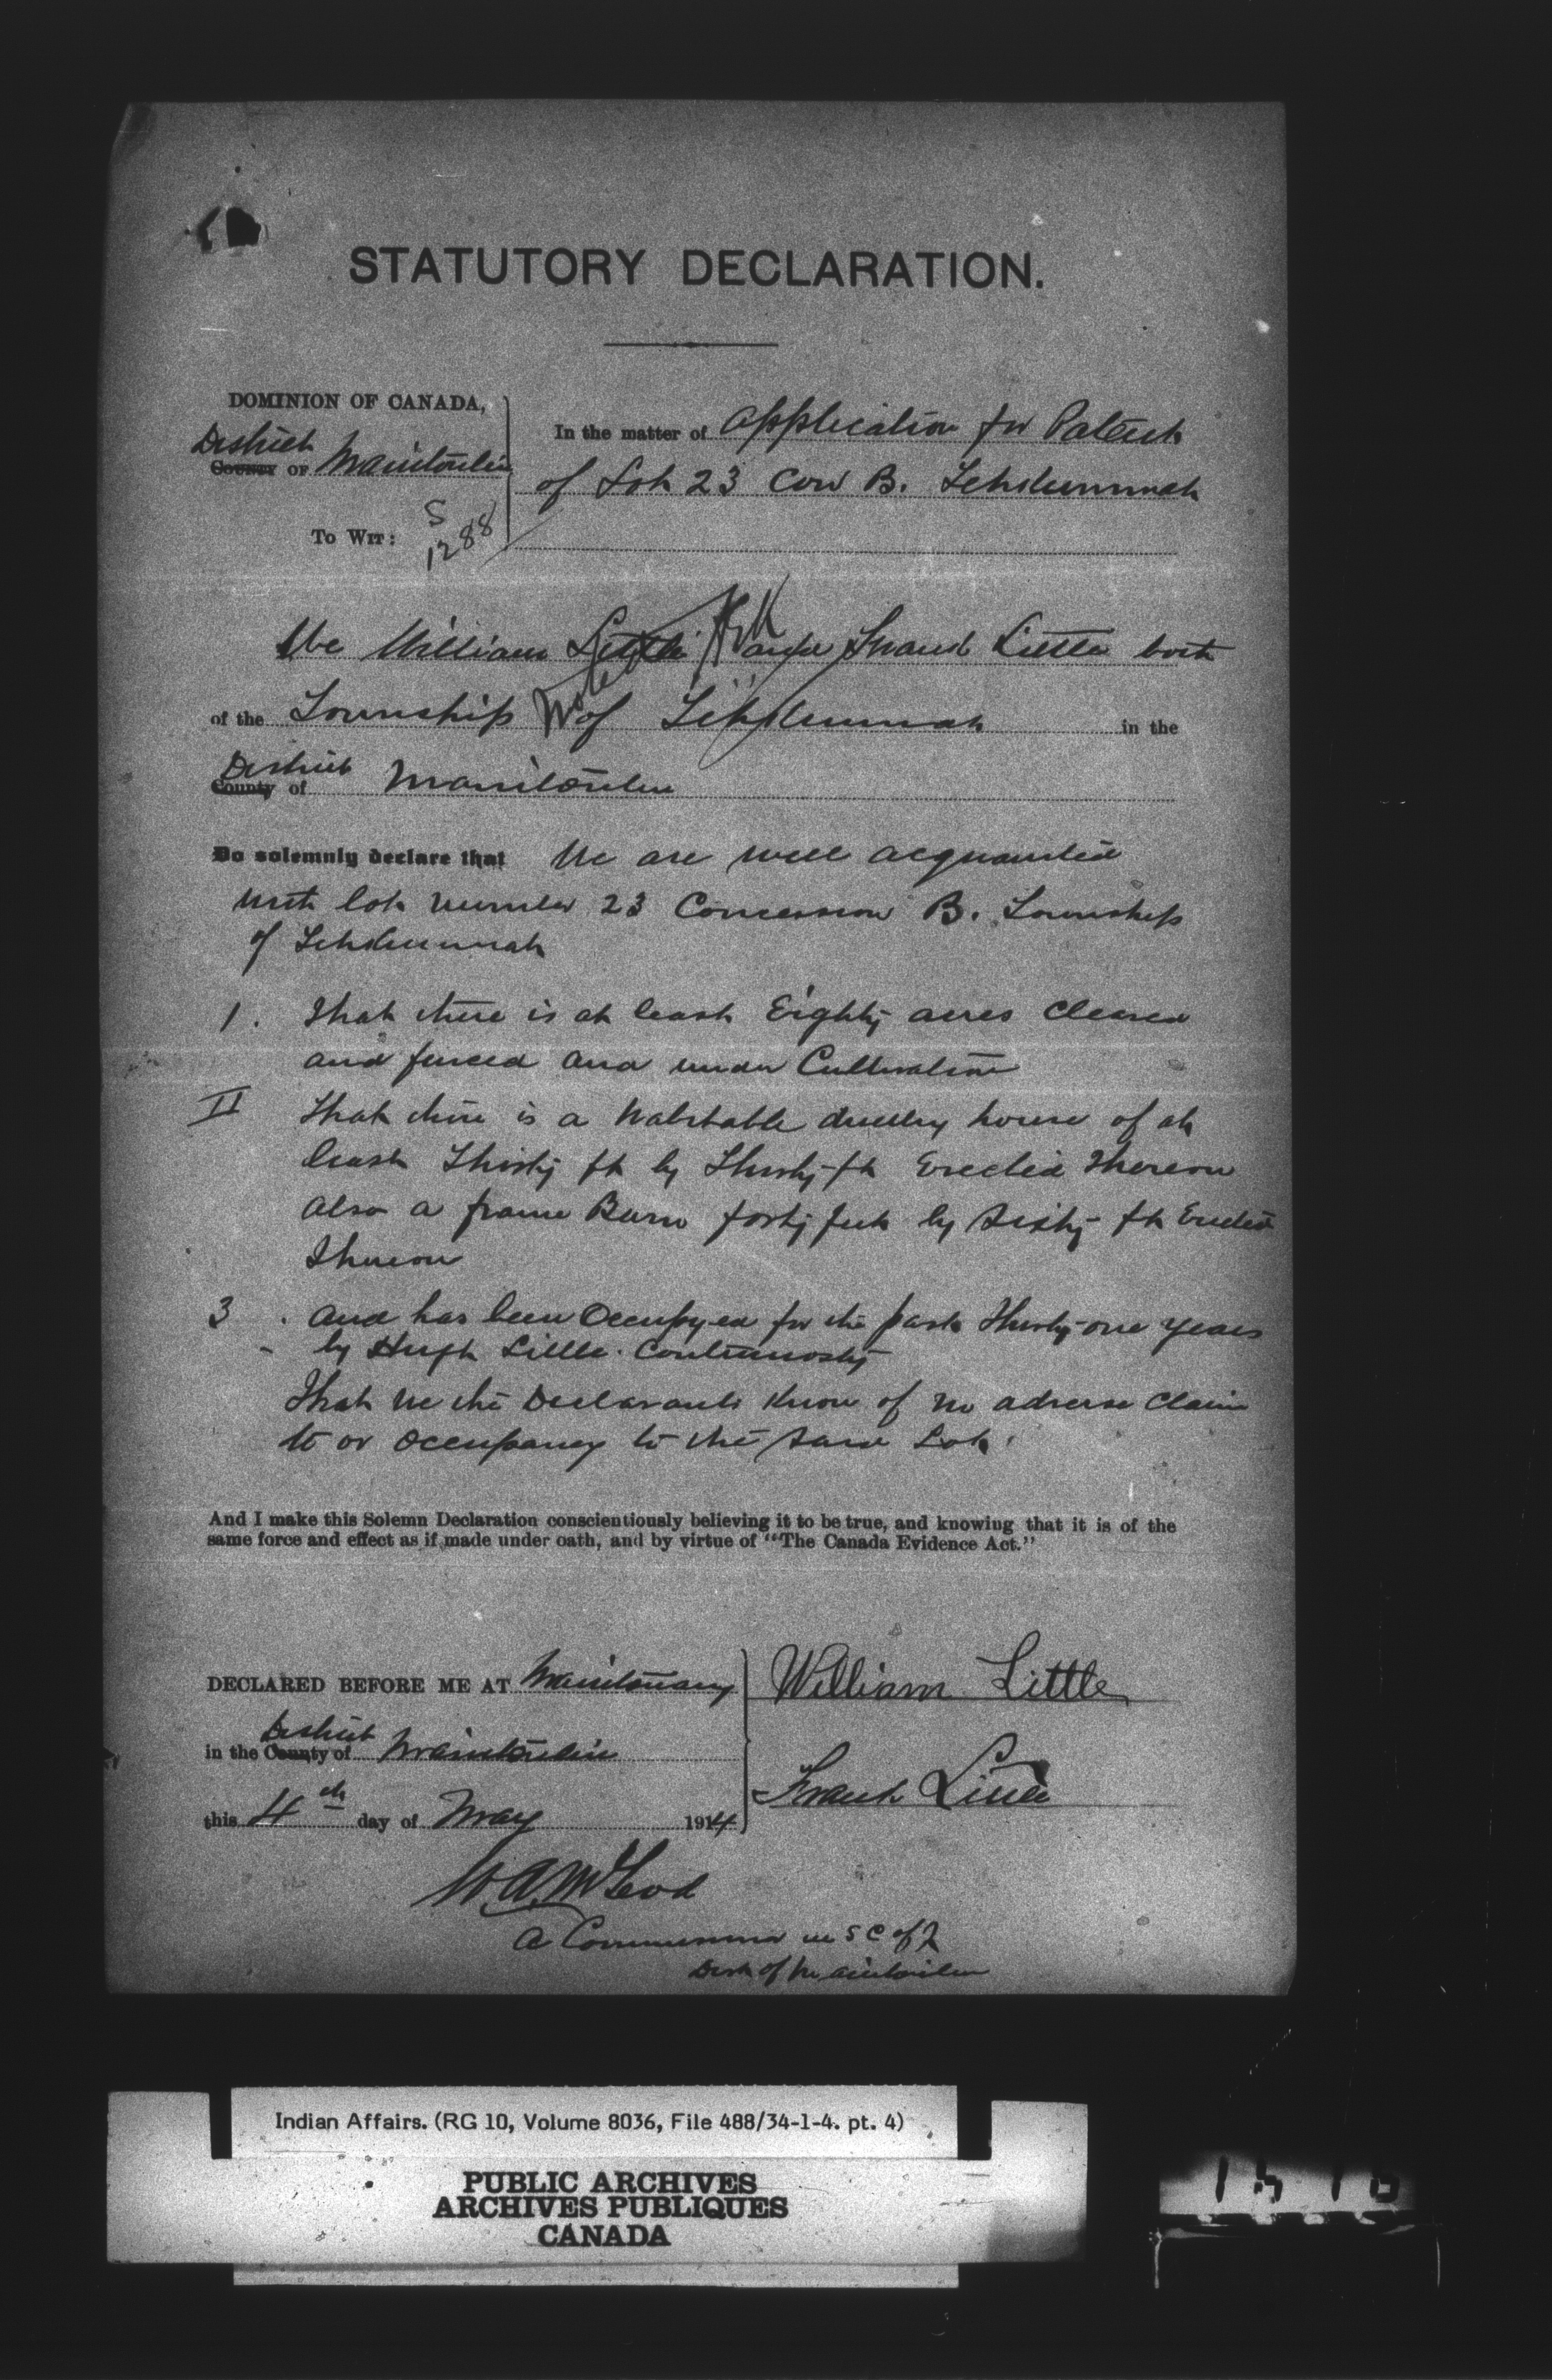 STATUTORY DECLARATION.
DOMINION OF CANADA,
District
County of Manitoulin
To Wit:
S
1288
In the matter of Application for Patent
of Lot 23 Con B. Tehkummah
We William Little and Frank Little both
Noted
of the Township of Tehkummah in the
District
County of Manitoulin
Do solemnly declare that We are well acquainted
with lot number 23 Concession B. Township
of Tehkummah
1. That there is at least Eighty acres cleared
and fenced and under Cultivation
II That there is a habitable dwelling house of at
least Thirty ft by Thirty ft Erected Thereon
also a frame Barn forty feet by sixty ft Erected
Thereon
3. and has been Occupyed for the past Thirty-one years
by Hugh Little. Continuosly
That we the Declarants know of no adverse claim
to or occupancy to the said Lot.
And I make this Solemn Declaration conscientiously believing it to be true, and knowing that it is of the
same force and effect as if made under oath, and by virtue of "The Canada Evidence Act."
DECLARED BEFORE ME AT Manitowaning
in the County of District Manitoulin
this 4th day of May 1914
William Little
Frank Little
W. A. McLeod
A Commissioner in
Dist of Manitoulin
Indian Affairs. (RG 10, Volume 8036, File 488/34-1-4. pt. 4)
PUBLIC ARCHIVES
ARCHIVES PUBLIQUES
CANADA